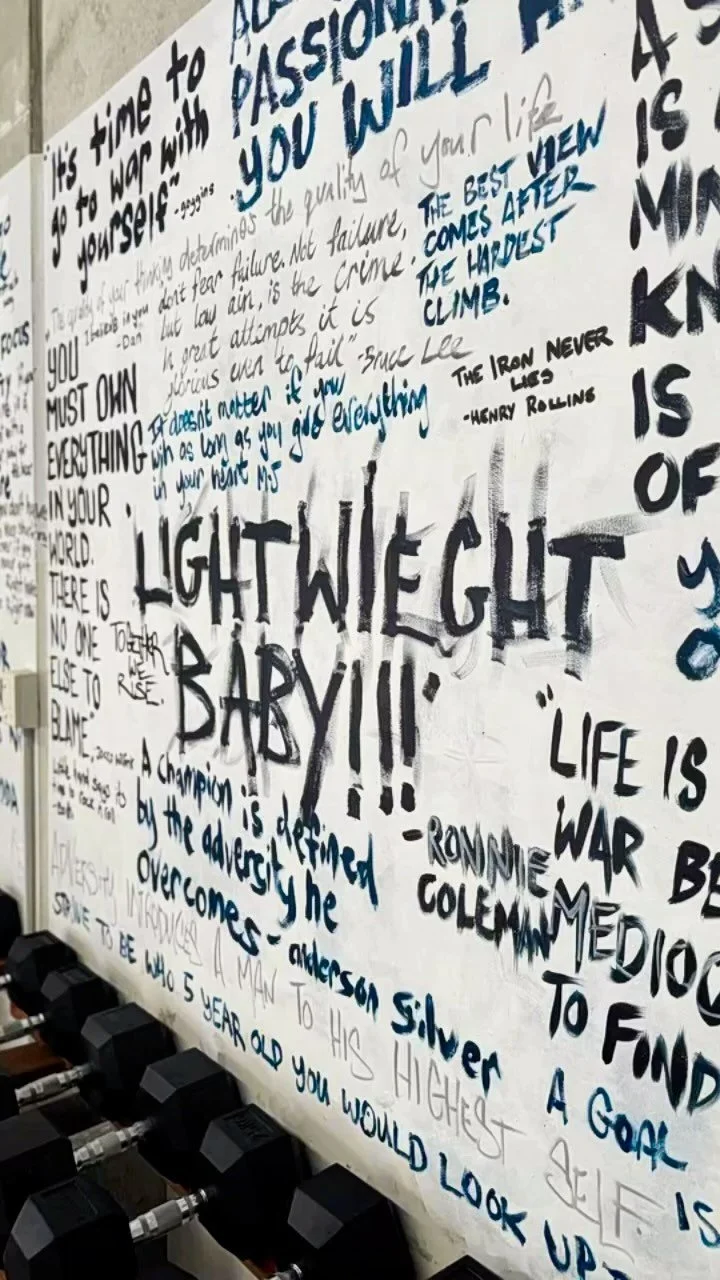 PASSIONA
YOU WILL
"It's time to
go to war with
yourself"
-goggins
The quality of your thinking determines the quality of your life
THE BEST VIEW
COMES AFTER
THE HARDEST
CLIMB.
"don't fear failure. Not failure,
but low aim, is the crime.
In great attempts it is
glorious even to fail" -Bruce Lee
I believe in you
-Dan
THE IRON NEVER
LIES
-HENRY ROLLINS
"YOU
MUST OWN
EVERYTHING
IN YOUR
WORLD.
THERE IS
NO ONE
ELSE TO
BLAME"
It doesn't matter if you
win as long as you give everything
in your heart MJ
"LIGHTWIEGHT
BABY!!!"
-RONNIE
COLEMAN
TOGETHER
WE
RISE.
A champion is defined
by the adversity he
overcomes - anderson Silver
ADVERSITY INTRODUCES A MAN TO HIS HIGHEST SELF.
STRIVE TO BE WHO 5 YEAR OLD YOU WOULD LOOK UP
A
IS
MIN
KN
IS
OF
"LIFE IS
WAR BE
MEDIOC
TO FIND
A GOAL
IS
FOCUS